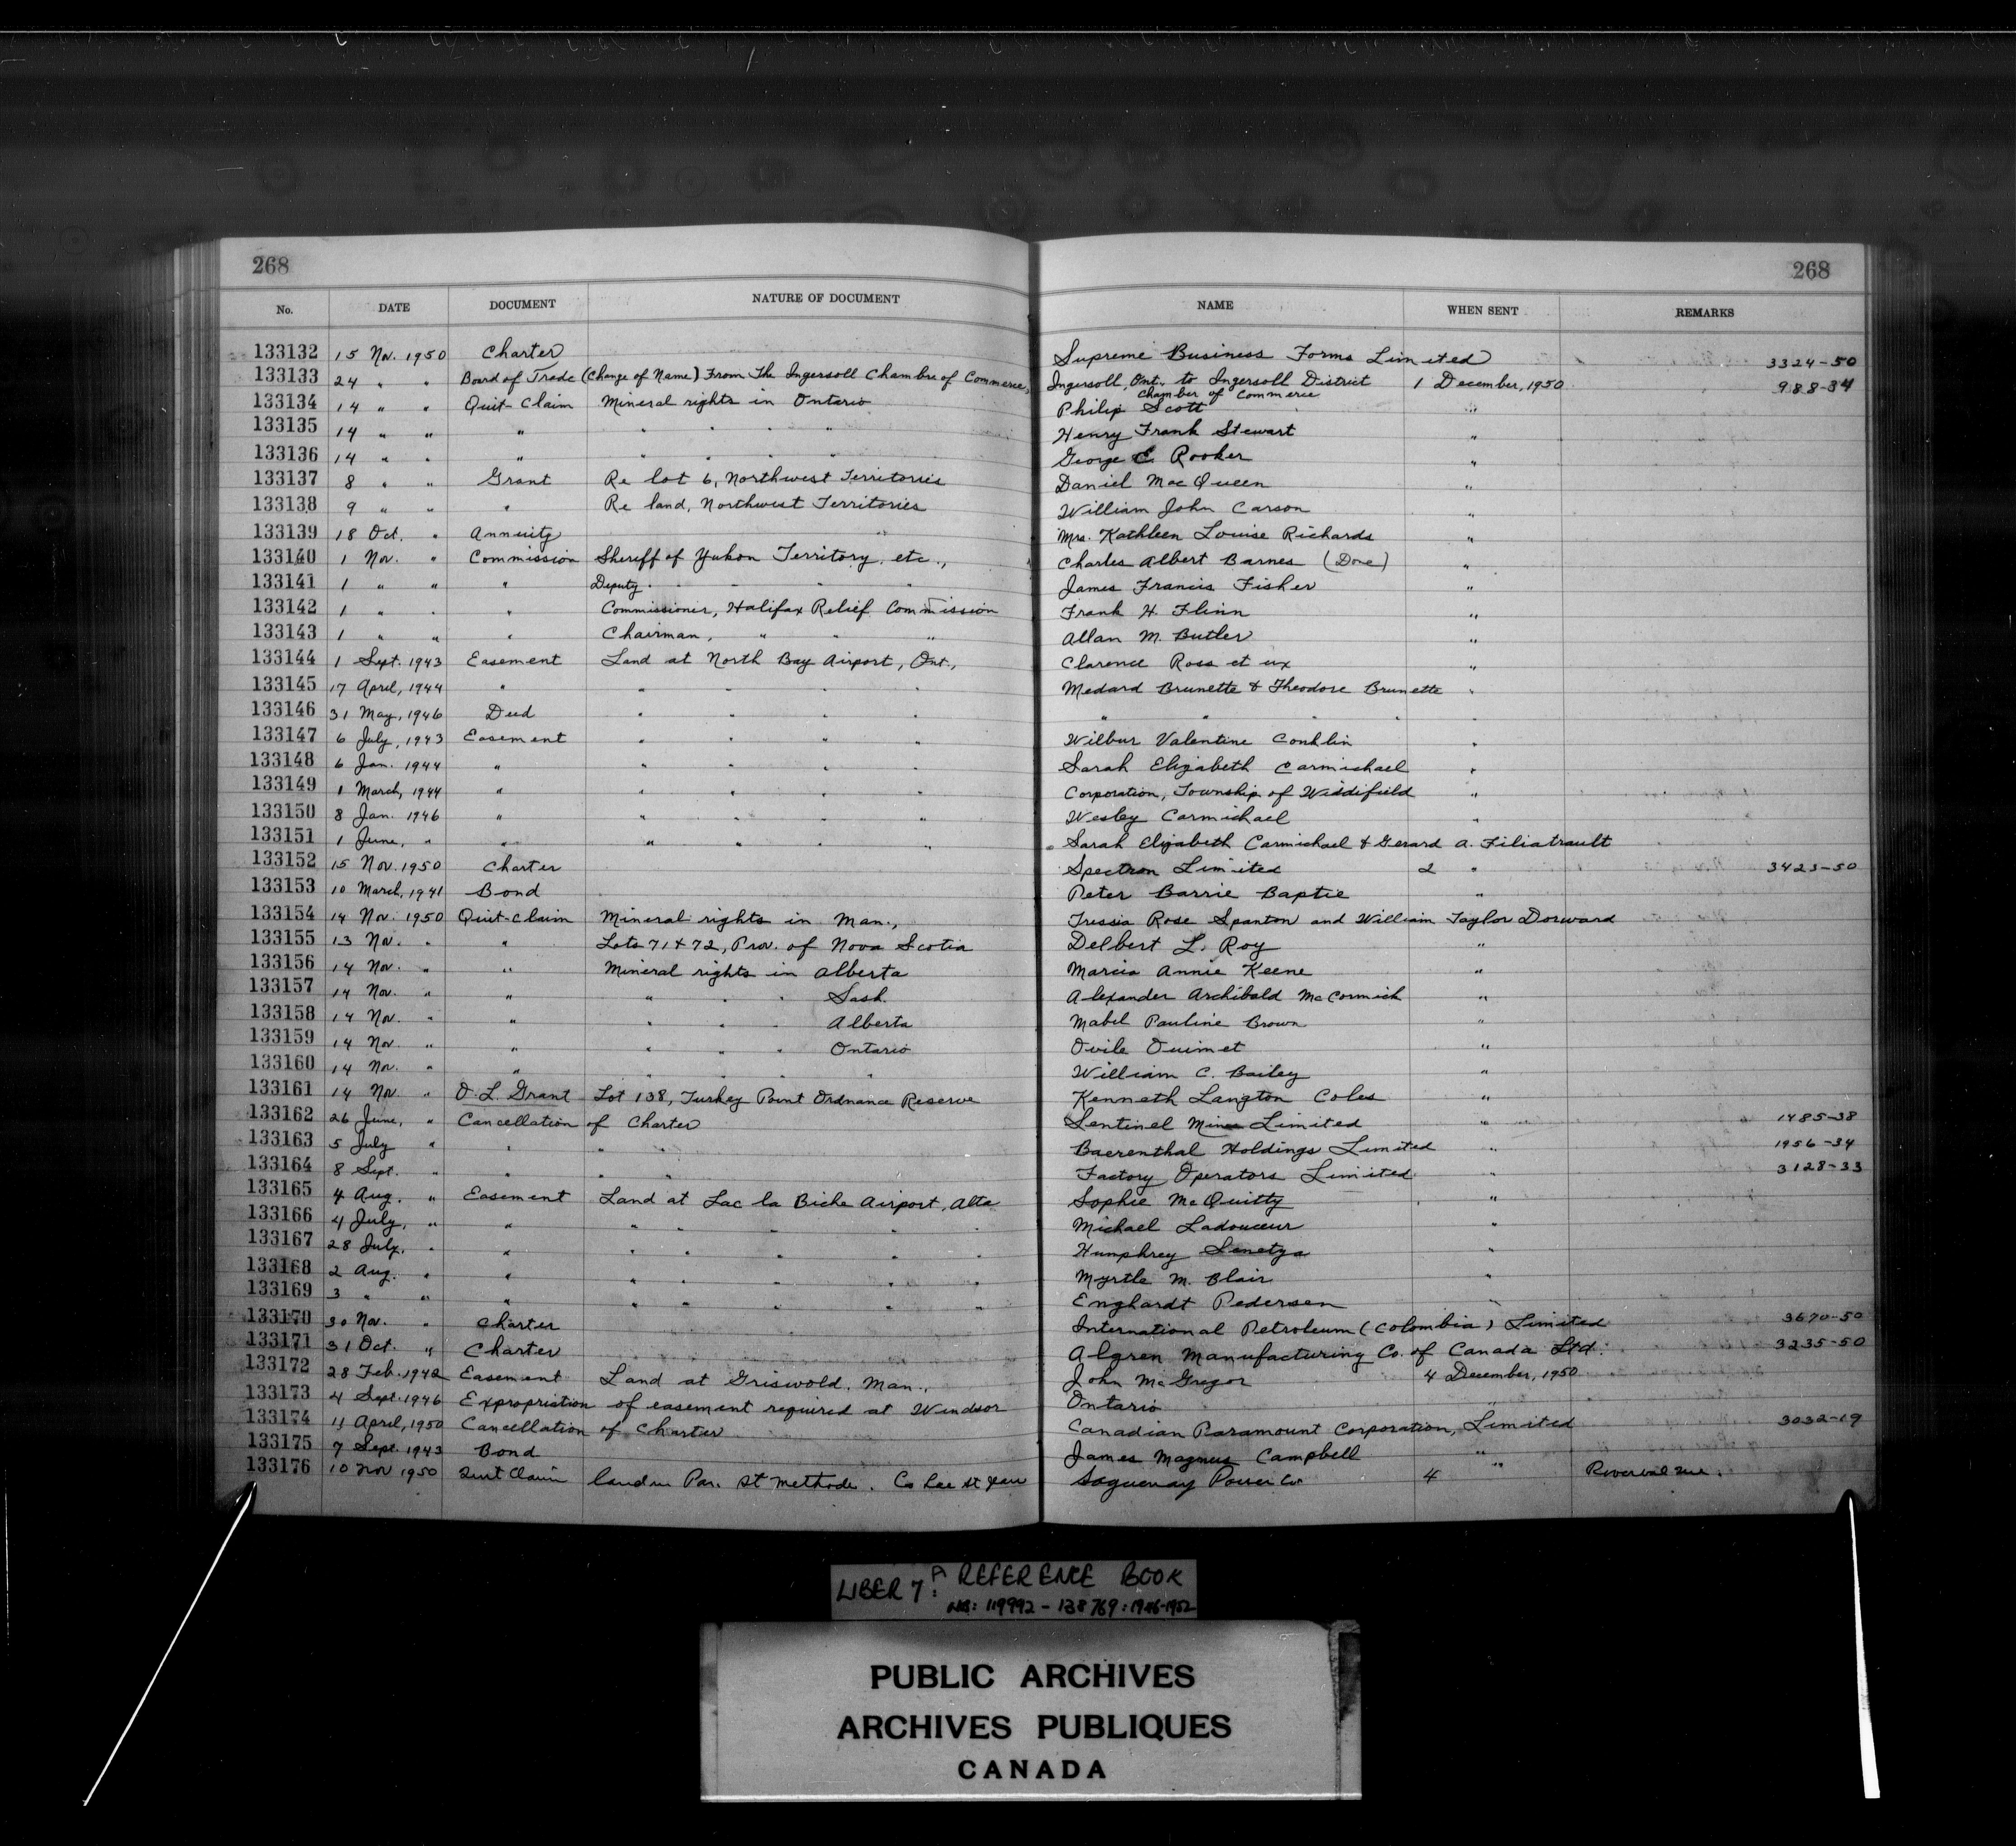 268 268
No. DATE DOCUMENT NATURE OF DOCUMENT NAME WHEN SENT REMARKS
133132 15 Nov. 1950 Charter Supreme Business Forms Limited 3324-50
133133 24 " " Board of Trade (Change of Name) From The Ingersoll Chambre of Commerce, Ingersoll, Ont. to Ingersoll District 1 December, 1950 988-34
Chamber of Commerce
133134 14 " " Quit-Claim Mineral rights in Ontario Philip Scott "
133135 14 " " " " " " " Henry Frank Stewart "
133136 14 " " " " " " " George E. Rooker "
133137 8 " " Grant Re lot 6, Northwest Territories Daniel MacQueen "
133138 9 " " " Re land, Northwest Territories William John Carson "
133139 18 Oct. " Annuity Mrs. Kathleen Louise Richards "
133140 1 Nov. " Commission Sheriff of Yukon Territory, etc., Charles Albert Barnes (Doe) "
133141 1 " " " Deputy " " " " James Francis Fisher "
133142 1 " " " Commissioner, Halifax Relief Commission Frank H. Flinn "
133143 1 " " " Chairman, " " " Allan M. Butler "
133144 1 Sept. 1943 Easement Land at North Bay Airport, Ont., Clarence Ross et ux "
133145 17 April, 1944 " " " " " Medard Brunette & Theodore Brunette "
133146 31 May, 1946 Deed " " " " " " " " "
133147 6 July, 1943 Easement " " " " Wilbur Valentine Conklin "
133148 6 Jan. 1944 " " " " " Sarah Elizabeth Carmichael "
133149 1 March, 1944 " " " " " Corporation, Township of Widdifield "
133150 8 Jan. 1946 " " " " " Wesley Carmichael "
133151 1 June, " " " " " " Sarah Elizabeth Carmichael & Gerard A. Filiatrault
133152 15 Nov. 1950 Charter Spectron Limited 2 " 3423-50
133153 10 March, 1941 Bond Peter Barrie Baptie "
133154 14 Nov. 1950 Quit-Claim Mineral rights in Man., Tressia Rose Spanton and William Taylor Dorward
133155 13 Nov. " " Lots 71 & 72, Prov. of Nova Scotia Delbert L. Roy "
133156 14 Nov. " " Mineral rights in Alberta Marcia Annie Keene "
133157 14 Nov. " " " " " Sask. Alexander Archibald McCormick "
133158 14 Nov. " " " " " Alberta Mabel Pauline Brown "
133159 14 Nov. " " " " " Ontario Ovile Ouimet "
133160 14 Nov. " " " " " " William C. Bailey "
133161 14 Nov " O. L. Grant Lot 138, Turkey Point Ordnance Reserve Kenneth Langton Coles "
133162 26 June, " Cancellation of Charter Sentinel Mines Limited " 1485-38
133163 5 July " " " " Baerenthal Holdings Limited " 1956-34
133164 8 Sept. " " " " Factory Operators Limited " 3128-33
133165 4 Aug. " Easement Land at Lac la Biche Airport, Alta Sophie McQuitty "
133166 4 July, " " " " " " " Michael Ladouceur "
133167 28 July, " " " " " " " Humphrey "
133168 2 Aug. " " " " " " " Myrtle M. Blair "
133169 3 " " " " " " " " Enghardt Pedersen "
133170 30 Nov. " Charter International Petroleum (Colombia) Limited 3670-50
133171 31 Oct. " Charter Algren Manufacturing Co. of Canada Ltd. 3235-50
133172 28 Feb. 1942 Easement Land at Griswold, Man., John McGregor 4 December, 1950
133173 4 Sept. 1946 Expropriation of easement required at Windsor Ontario "
133174 11 April, 1950 Cancellation of Charter Canadian Paramount Corporation, Limited 3032-19
133175 7 Sept. 1943 Bond James Magnus Campbell " "
133176 10 Nov 1950 Quit Claim land in Par. St Methode. Co Saguenay Power Co. 4
LIBER 7: A REFERENCE BOOK
NO: 119992 - 138769: 1946-1952
PUBLIC ARCHIVES
ARCHIVES PUBLIQUES
CANADA